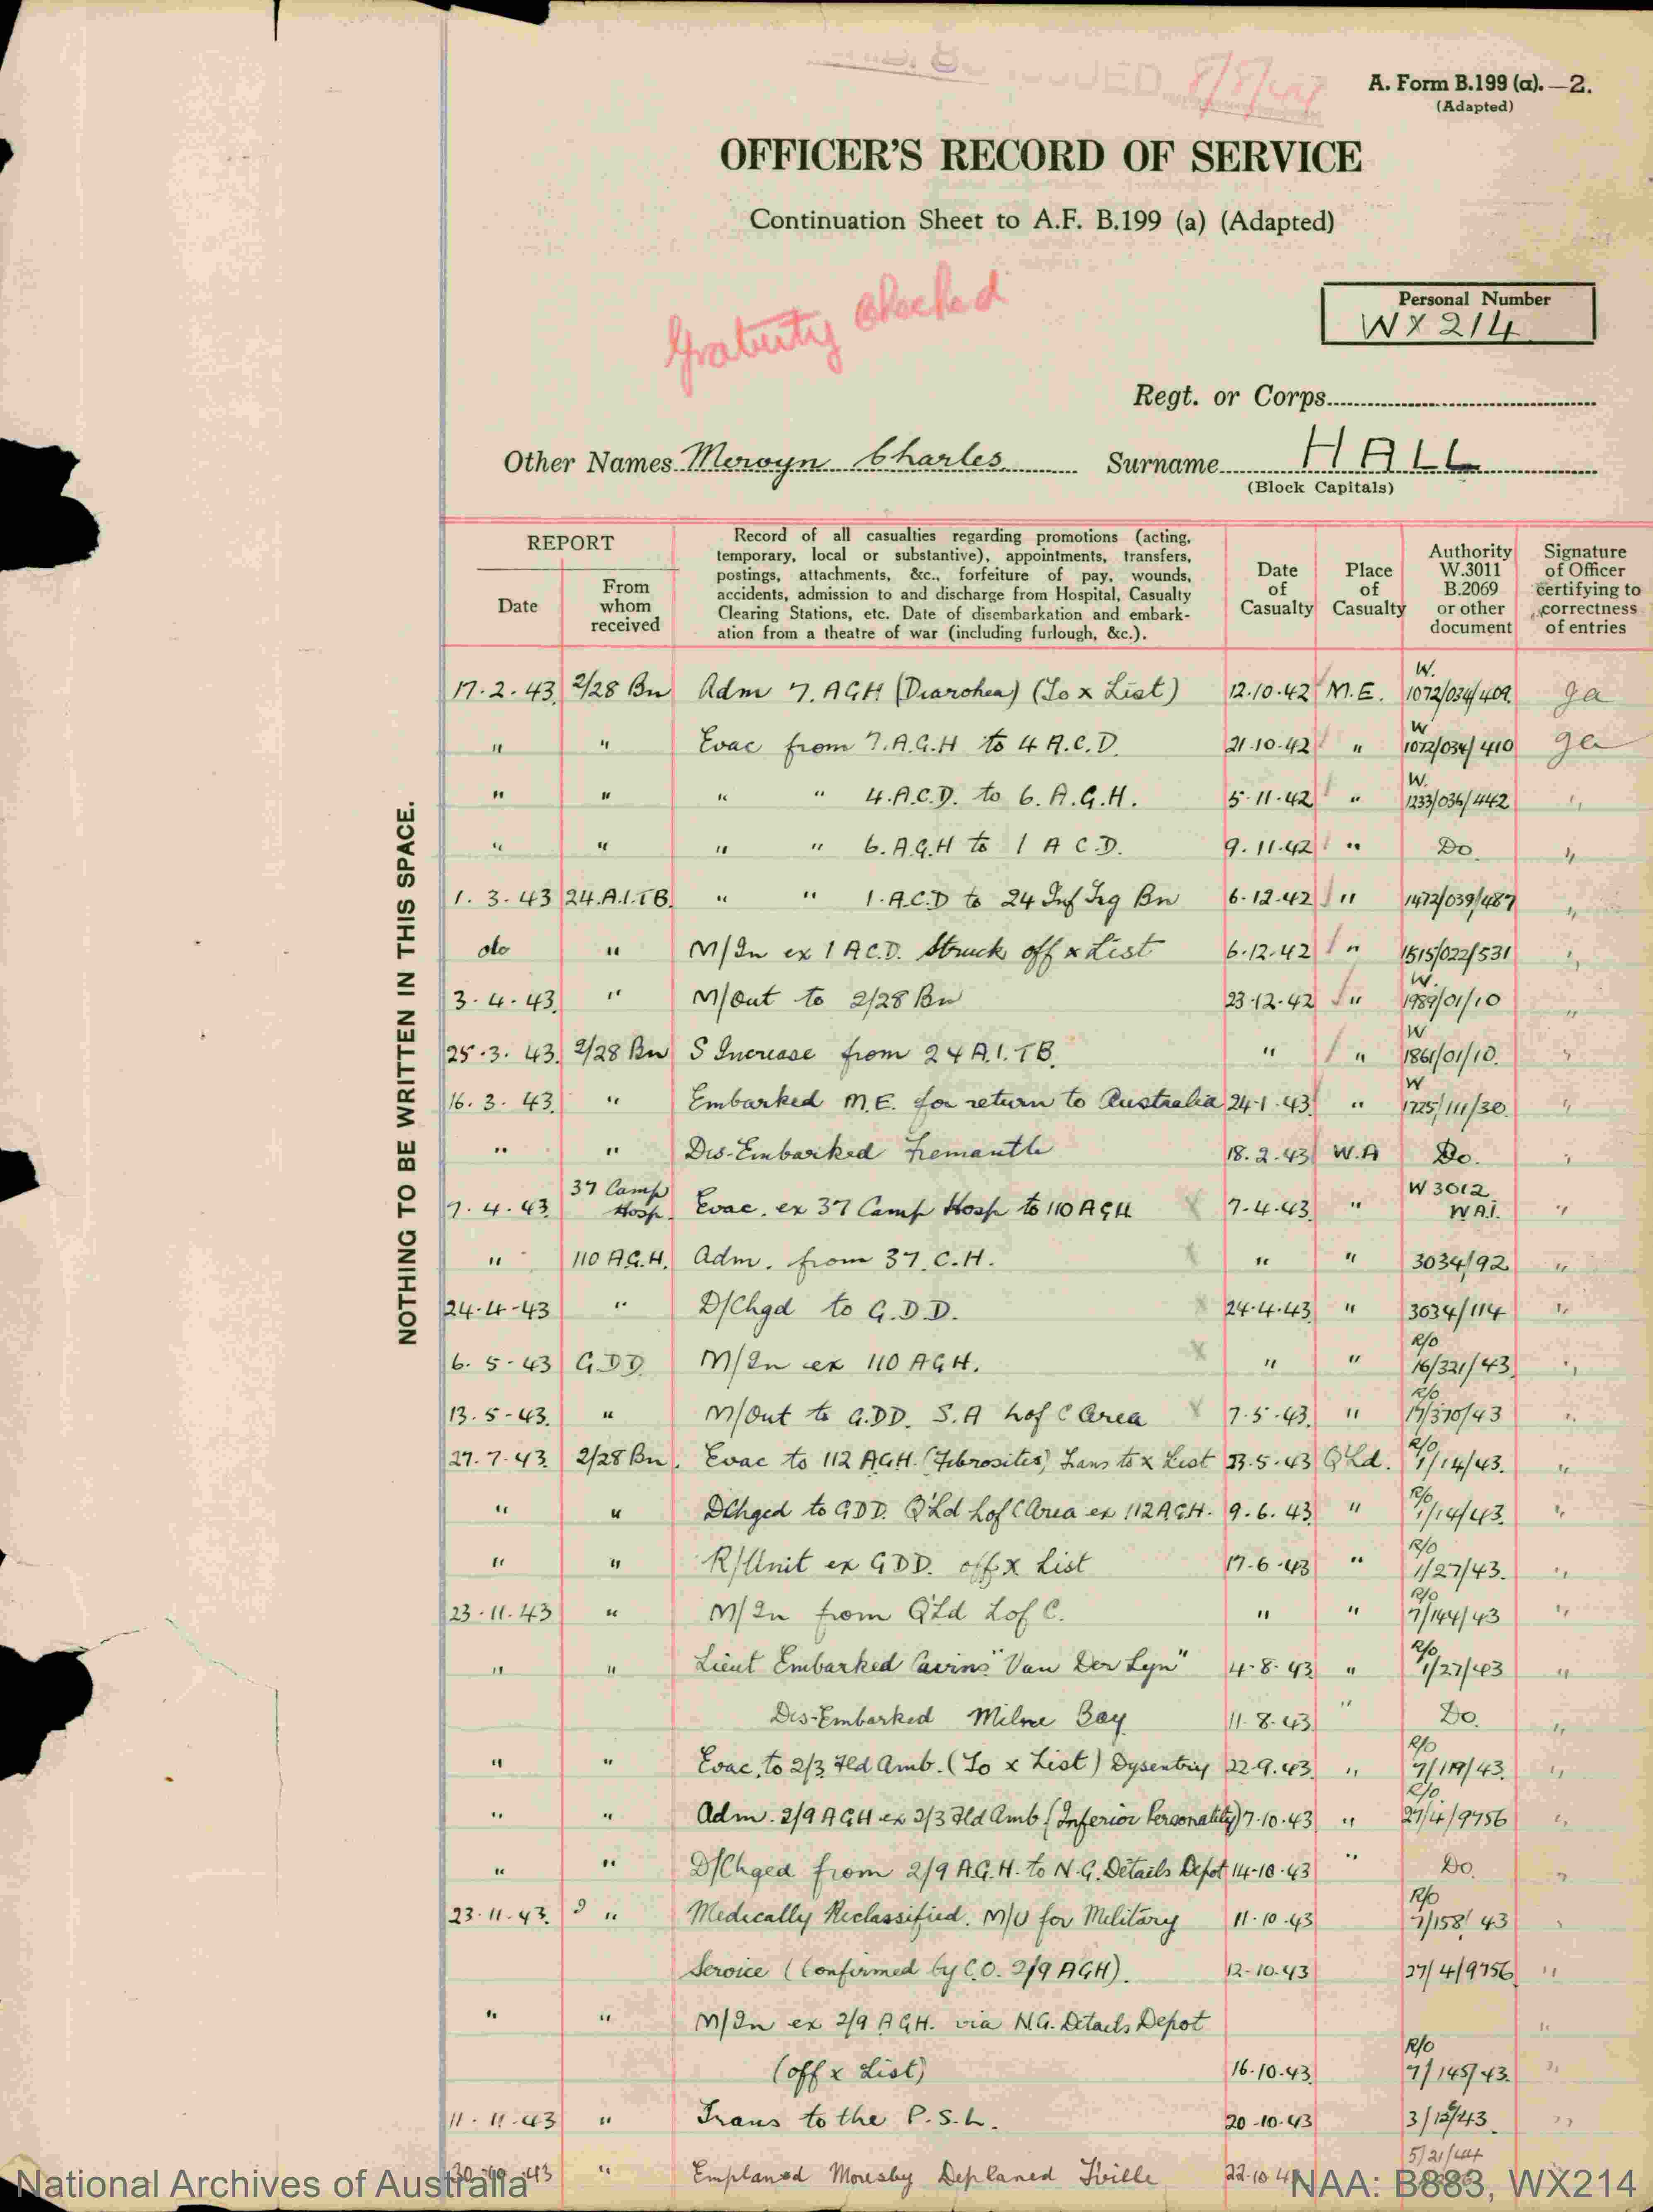 A. Form B.199 (a).—2.
(Adapted)
OFFICER'S RECORD OF SERVICE
Continuation Sheet to A.F. B.199 (a) (Adapted)
Gratuity Checked
Personal Number
WX 214
Regt. or Corps
Other Names Mervyn Charles Surname HALL
(Block Capitals)
REPORT
Date
From whom received
Record of all casualties regarding promotions (acting,
temporary, local or substantive), appointments, transfers,
postings, attachments, &c., forfeiture of pay, wounds,
accidents, admission to and discharge from Hospital, Casualty
Clearing Stations, etc. Date of disembarkation and embark-
ation from a theatre of war (including furlough, &c.).
Date of Casualty
Place of Casualty
Authority W.3011 B.2069 or other document
Signature of Officer certifying to correctness of entries
NOTHING TO BE WRITTEN IN THIS SPACE.
17.2.43 2/28 Bn Adm 7. AGH (Diarohea) (To x List) 12.10.42 M.E. W. 1072/034/409
" " Evac from 7.A.G.H to 4 A.C.D. 21.10.42 " W 1072/034/410
" " " " 4.A.C.D. to 6.A.G.H. 5.11.42 " W. 1233/036/442 "
" " " " 6.A.G.H to 1 A C.D. 9.11.42 " Do. "
1.3.43 24.A.I.TB. " " 1.A.C.D to 24 Inf Trg Bn 6.12.42 " 1472/039/487 "
do " M/In ex 1 A.C.D. Struck off x List 6.12.42 " 1515/022/531 "
3.4.43 " M/Out to 2/28 Bn 23.12.42 " W. 1989/01/10 "
25.3.43. 2/28 Bn S Increase from 24 A.I.TB. " " W 1861/01/10. "
16.3.43. " Embarked M.E. for return to Australia 24.1.43 " W 1725/111/30. "
" " Dis-Embarked Fremantle 18.2.43 W.A Do. "
7.4.43 37 Camp Hosp. Evac. ex 37 Camp Hosp to 110 AGH 7.4.43 " W3012 WAI. "
" 110 A.G.H. Adm. from 37.C.H. " " 3034/92 "
24-4-43 " D/Chgd to G.D.D. 24.4.43 " 3034/114 "
6.5-43 G.D.D. M/In ex 110 AGH. " " R/O 16/321/43 "
13.5-43. " M/Out to G.DD. S.A L of C Area 7.5.43. " R/O 17/370/43 "
27.7.43. 2/28 Bn. Evac to 112 AGH. (Fibrosites) Trans to x List 23.5.43 Qld. R/O 1/14/43. "
" " DChged to GDD. Q'ld L of C Area ex 112 AGH. 9.6.43 " R/O 1/14/43. "
" " R/Unit ex GDD. off x List 17.6.43 " R/O 1/27/43. "
23.11.43 " M/In from Qld L of C. " " R/O 7/144/43 "
" " Lieut Embarked Cairns "Van Der Lyn" 4.8.43 " R/O 1/27/43 "
Dis-Embarked Milne Bay 11.8.43 " Do. "
" " Evac. to 2/3 Fld Amb. (To x List) Dysentry 22.9.43. " R/O 7/119/43. "
" " Adm. 2/9 AGH ex 2/3 Fld Amb (Inferior Personality) 7.10.43 " R/O 27/4/9756 "
" " D/Chged from 2/9 A.G.H. to N.G. Details Depot 14-10-43 " Do. "
23.11.43. " Medically Reclassified. M/U for Military 11.10.43 R/O 7/158/43 "
Service (Confirmed by C.O. 2/9 AGH). 12-10.43 27/4/9756 "
" " M/In ex 2/9 AGH. via N.G. Details Depot "
(off x List) 16.10.43 R/O 7/145/43. "
11.11.43 " Trans to the P.S.L. 20-10.43 "
" Emplaned Moresby Deplaned T'ville 22.10.4 5/21/44
National Archives of Australia
NAA: B883, WX214